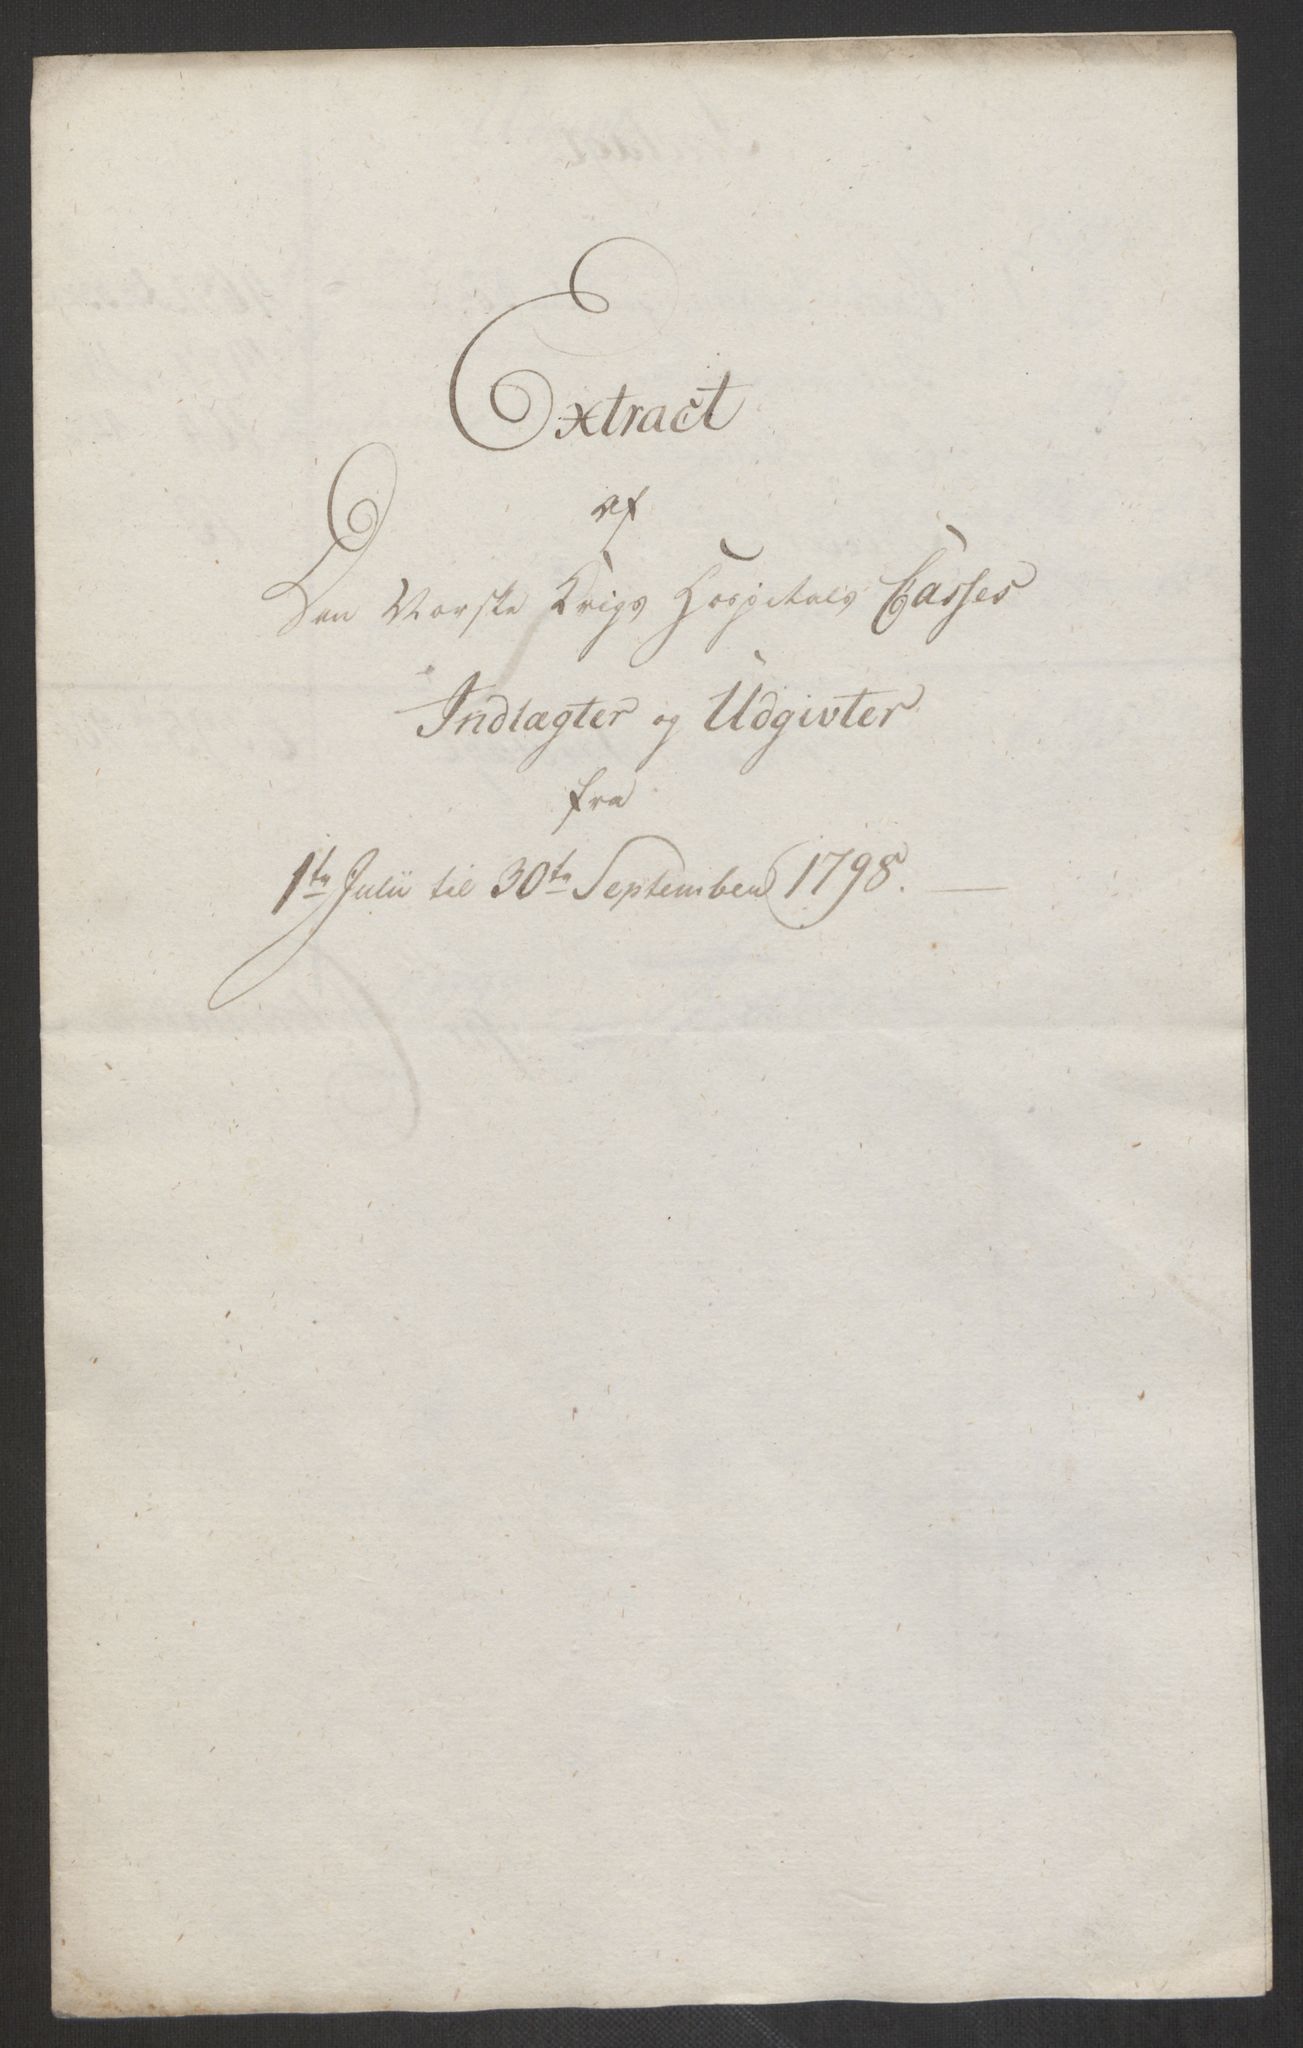 Extract
af
Den Norske Krigs Hospitals Casses
Indtægter og Udgivter
fra
1te Julii til 30te September 1798.